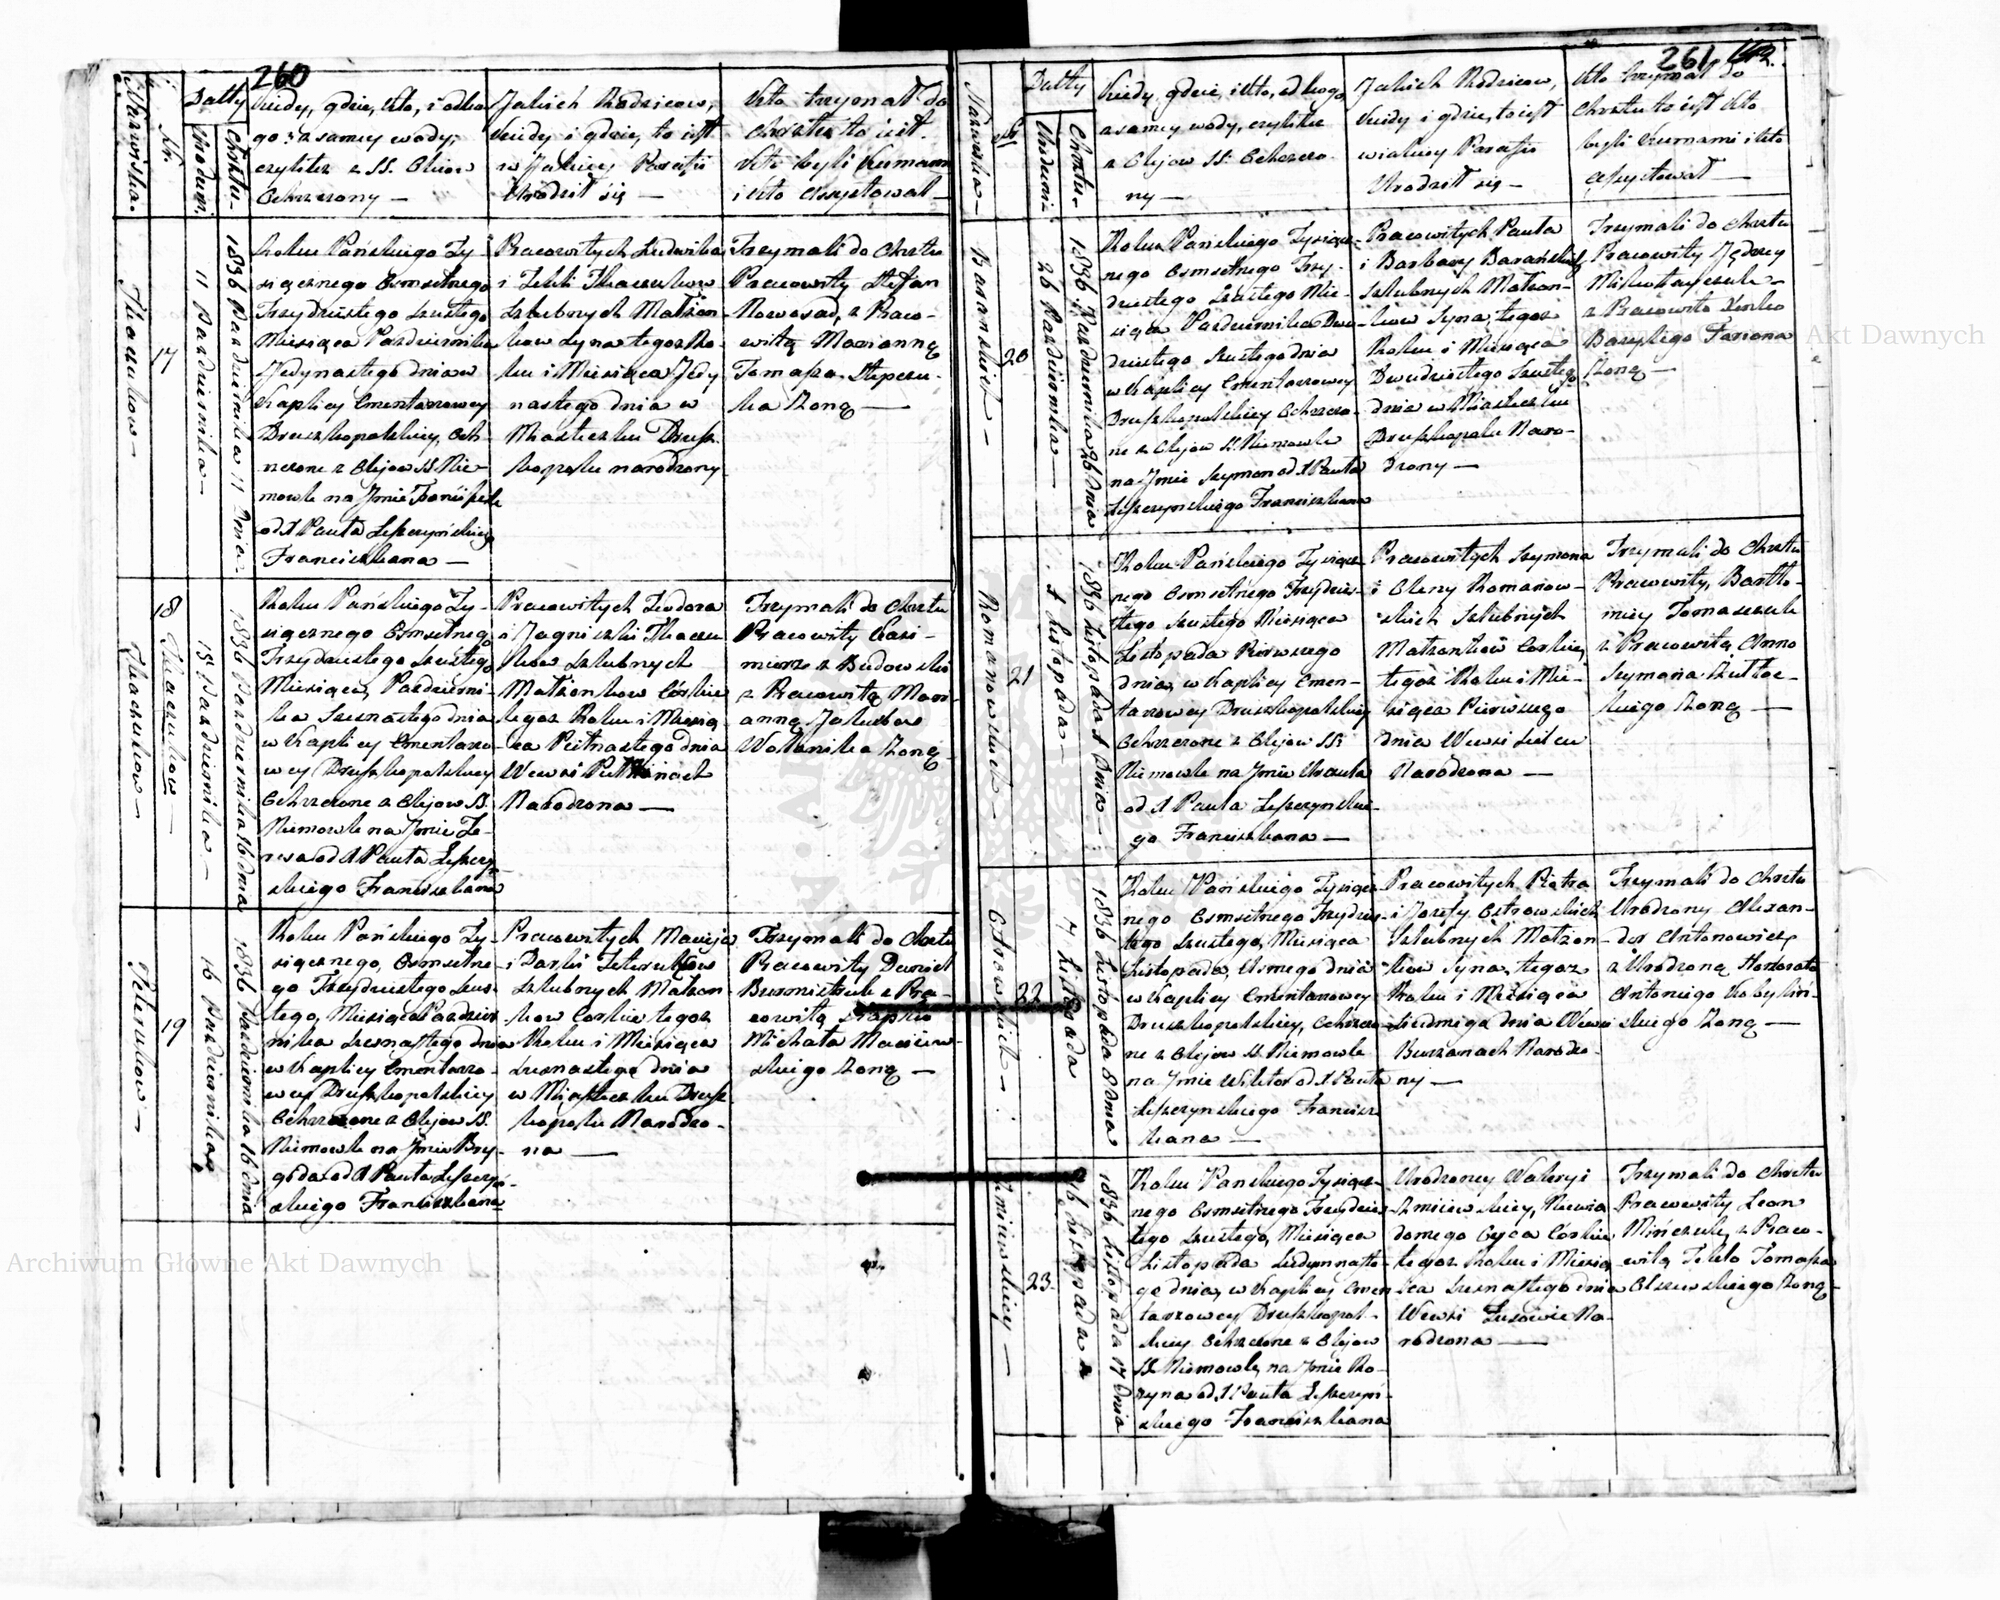 260
Nazwiska.
Nr.
Datty
Urodzin.
Chrztu.
Kiedy, gdzie, kto, i od ko
go: z samey wody,
czyli też z SS. Olejow
Ochrzczony —
Jakich Rodzicow,
kiedy i gdzie, to iest
w Jakiey Parafii
Urodził się —
Kto trzymał do
Chrztu to iest.
kto byli kumami
i kto Assystował —
Tkaczukow —
17
11 Pazdziernika —
1836 Pazdziernika 11 Dnia.
Roku Pańskiego Ty-
siącznego Osmsetnego
Trzydziestego szustego
Miesiąca Pazdziernika
Jedynastego dnia w
Kaplicy Cmentarzowey
Druszkopolskiey, Och
rzczone z Olejow SS Nie-
mowle na Jmie Franciszek
od X Pauła Leszczyńskiego
Franciszkana —
Pracowitych Ludwika
i Tekli Tkaczukow
Szlubnych Małżon
kow Syna tegoż Ro-
ku i Miesiąca Jedy
nastego dnia w
Miasteczku Drusz
kopolu narodzony.
Trzymali do Chrztu
Pracowity Stefan
Nowosad, z Praco-
witą Marianną
Tomasza Stepczu-
ka Żoną —
18
Tkaczukow
Tkaczukow —
15 Pazdziernika —
1836 Pazdziernika 16 dnia
Roku Pańskiego Ty-
siącznego Osmsetneg
Trzydziestego szustego
Miesiąca, Pazdzierni-
ka Szesnastego dnia
w Kaplicy Cmentarzo-
wey Druszkopolskiey
Ochrzczone z Olejow SS.
Niemowle na Jmie Te-
ressa od X Pauła Leszczy
skiego Franciszkana
Pracowitych Teodora
i Jagnieszki Tkaczu
kow szlubnych
Małżonkow Córkie
tegoż Roku i Miesią
ca Pietnastego dnia
Wewsi
Narodzona —
Trzymali do Chrztu
Pracowity Kazi-
mierz z Budowski
z Pracowitą Mary
anną Jakubow
Wołanika Żoną
Peterukow —
19
16 Pazdziernika
1836 Pazdziernika 16 dnia
Roku Pańskiego Ty-
siącznego, Osmsetne-
go Trzydziestego szus-
tego, Miesiąca Pazdzier
nika szesnastego dnia
w Kaplicy Cmentarzo-
wey Druszkopolskiey
Ochrzczone z Olejow SS.
Niemowle na Jmie Bry-
gida od X Pauła Leszczyń-
skiego Franciszkana
Pracowitych Macieja
i Darki Peterukow
Szlubnych Małżon
kow Corkie tegoż
Roku i Miesiąca
szesnastego dnia
w Miasteczku Drusz
kopolu Narodzo-
na —
Trzymali do Chrztu
Pracowity Daniel
Burmistruk z Pra-
cowitą
Michała Maciew-
skiego Żoną —
261
Nazwiska —
Nr
Datty
Urodzin
Chrztu —
Kiedy, gdzie, i kto, od kogo,
z samey wody, czyli też
z Olejow SS: Ochrzczo-
ny —
Jakich Rodzicow,
kiedy i gdzie, to iest
w iakiey Parafii
Urodził się —
Kto trzymał do
Chrztu to iest kto
byli Kumami i kto
Assystował —
Baranskich —
20
26 Pazdziernika —
1836 Pazdziernika 26 dnia
Roku Pańskiego Tysiącz-
nego Osmsetnego Trzy-
dziestego szustego Mie-
siąca Pazdziernika Dwu
dziestego szustego dnia
w Kaplicy Cmentarzowey
Druszkopolskiey Ochrzczo-
ne z Olejow SS. Niemowle
na Jmie Szymon od X Pauła
Leszczynskiego Franciszkana
Pracowitych Pauła
i Barbary Barańskich
Szlubnych Małżon-
kow Syna, tegoż
Roku i Miesiąca
Dwudziestego szustego
dnia w Miasteczku
Druszkopolu Naro-
dzony —
Trzymali do Chrztu
Pracowity Jędrzey
Mikołayczuk —
z Pracowitą
Bazylego Fariona
Żoną —
Romanowskich —
21
1 Listopada —
1836 Listopada 1 Dnia —
Roku Pańskiego Tysiącz-
nego Osmsetnego Trzydzies-
tego szustego Miesiąca
Listopada Pierwszego
dnia, w Kaplicy Cmen-
tarzowey Druszkopolskiey
Ochrzczone z Olejow SS:
Niemowle na Jmie Urszula
od X Pauła Leszczynskie-
go Franciszkana —
Pracowitych Szymona
i Oleny Romanow-
skich Szlubnych
Małżonkow Corkie,
tegoż Roku i Mie-
siąca Pierwszego
dnia Wewsi
Narodzona —
Trzymali do Chrztu
Pracowity, Bartło-
miey Tomaszczuk
z Pracowitą Anno
Szymona
skiego Żoną —
Ostrowskich —
22
7 Listopada
1836 Listopada 8 Dnia
Roku Pańskiego Tysiącz
nego Osmsetnego Trzydzies-
tego szustego, Miesiąca
Listopada, Usmego dnia
w Kaplicy Cmentarzowey
Druszkopolskiey, Ochrzczo
ne z Olejow SS Niemowle
na Jmie Wiktor od X Pauła
Leszczynskiego Francisz
kana —
Pracowitych Piotra
i Jozefy Ostrowskich
Szlubnych Małżon
kow Syna, tegoż
Roku i Miesiąca
siudmiego dnia Wewsi
Burzanach Narodzo-
ny —
Trzymali do Chrztu
Urodzony Alexan-
der Antonowicz
z Urodzoną Honorato
Antoniego Kobyliń-
skiego Żoną —
Zmiiewskiey —
23.
16 Listopada
1836 Listopada 17 Dnia
Roku Panskiego Tysiącz-
nego Osmsetnego Trzydzies
tego szustego, Miesiąca
Listopada Siedymnasto-
go dnia, w Kaplicy Cmen
tarzowey Druszkopol-
skiey Ochrzczone z Olejow
SS. Niemowle, na Jmie Ro-
zyna od X Pauła Leszczyń-
skiego Franciszkana
Urodzoney Waleryi
Zmiiewskiey, Niewia
domego Oyca Corkie
tegoż Roku i Miesią
ca szesnastego dnia
Wewsi Na-
rodzona —
Trzymali do Chrztu
Pracowity Leon
Mińczuk, z Praco-
witą Teklo Tomasza
Olszewskiego Żoną
Archiwum Główne Akt Dawnych
Archiwum Główne Akt Dawnych